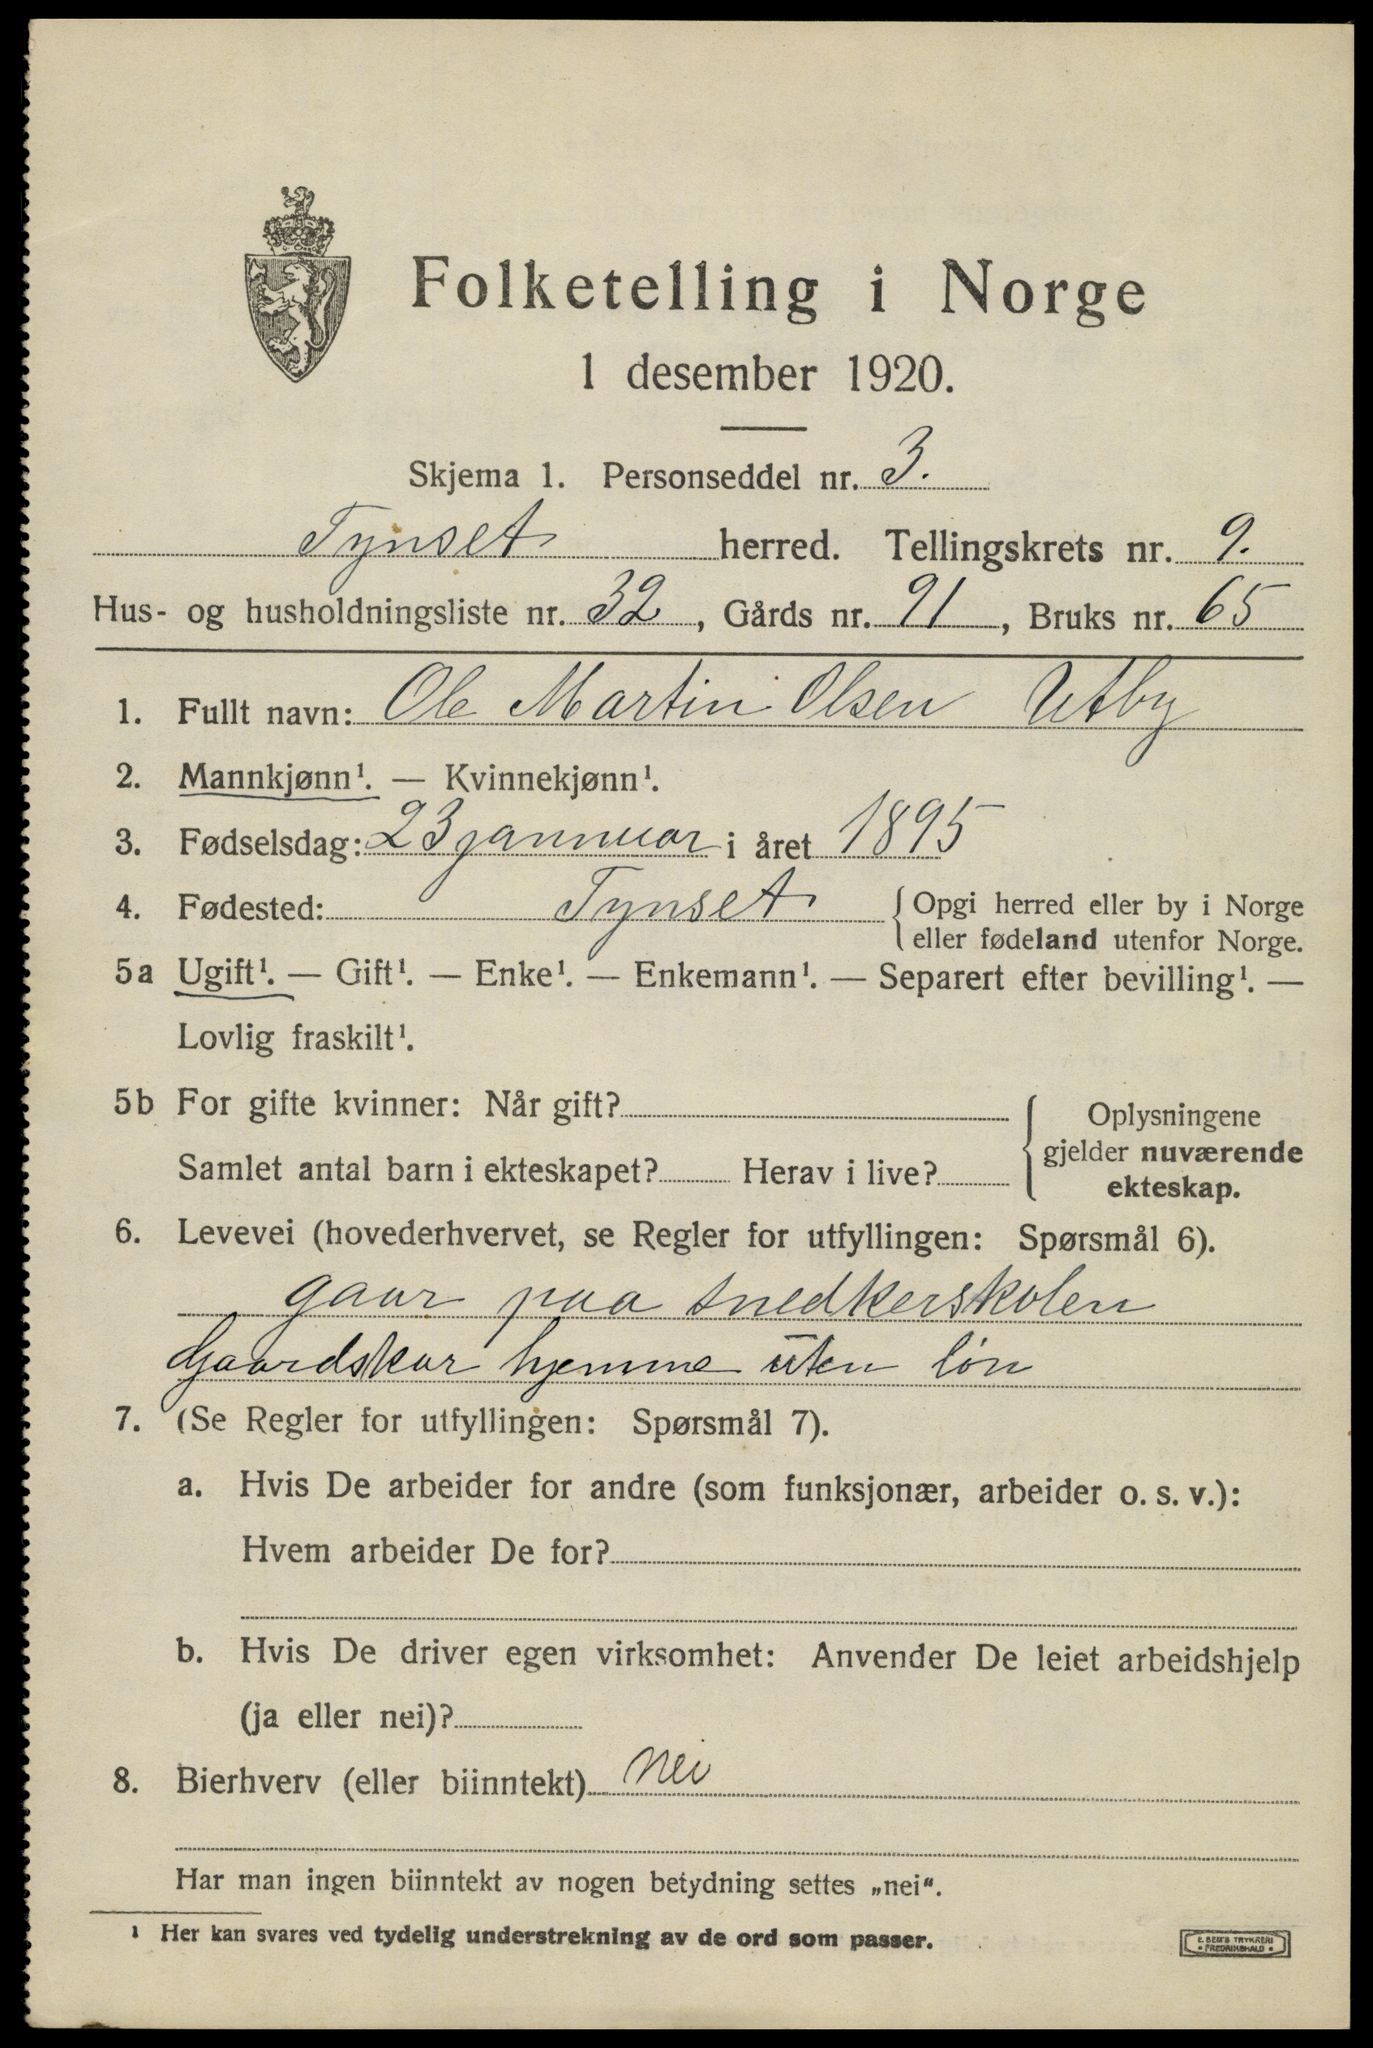 Folketelling i Norge
1 desember 1920.
Skjema 1. Personseddel nr. 3.
Tynset herred. Tellingskrets nr. 9.
Hus- og husholdningsliste nr. 32, Gårds nr. 91, Bruks nr. 65
1. Fullt navn: Ole Martin Olsen Utby
2. Mannkjønn¹. — Kvinnekjønn¹.
3. Fødselsdag: 23 januar i året 1895
4. Fødested: Tynset { Opgi herred eller by i Norge
eller fødeland utenfor Norge.
5a Ugift¹. — Gift¹. — Enke¹. — Enkemann¹. — Separert efter bevilling¹. —
Lovlig fraskilt¹.
5b For gifte kvinner: Når gift?
Samlet antal barn i ekteskapet? Herav i live?
{ Oplysningene
gjelder nuværende
ekteskap.
6. Levevei (hovederhvervet, se Regler for utfyllingen: Spørsmål 6).
gaar paa snedkerskolen
Gaardskar hjemme uten løn
7. (Se Regler for utfyllingen: Spørsmål 7).
a. Hvis De arbeider for andre (som funksjonær, arbeider o. s. v.):
Hvem arbeider De for?
b. Hvis De driver egen virksomhet: Anvender De leiet arbeidshjelp
(ja eller nei)?
8. Bierhverv (eller biinntekt) nei
Har man ingen biinntekt av nogen betydning settes „nei".
¹ Her kan svares ved tydelig understrekning av de ord som passer.
E. SEM'S TRYKKERI
• FREDRIKSHALD •